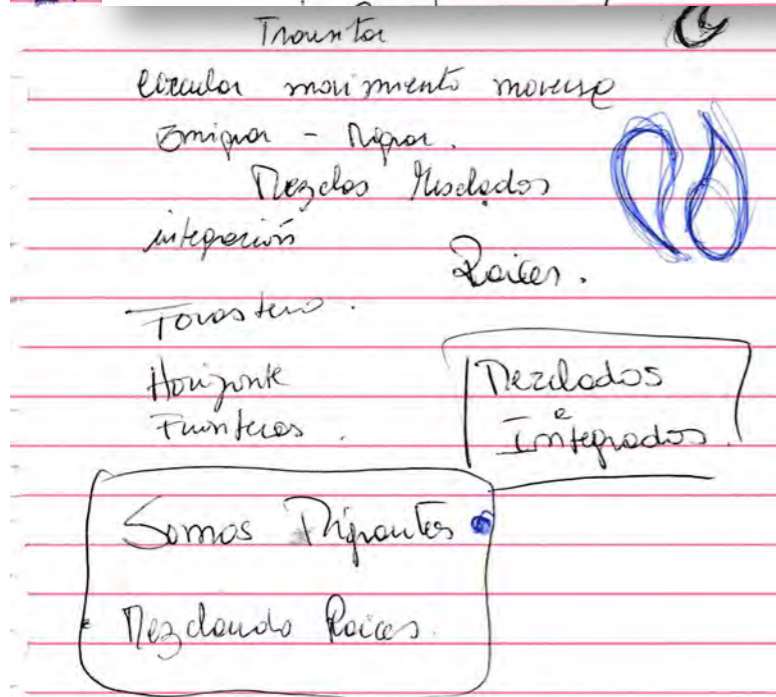 Transitar
Circular movimiento moverse
Emigrar - Migrar.
Mezclas Mezclados
integración
Raices.
Forastero.
Horizonte
Fronteras.
Mezclados
e
Integrados.
Somos Migrantes
Mezclando Raices.